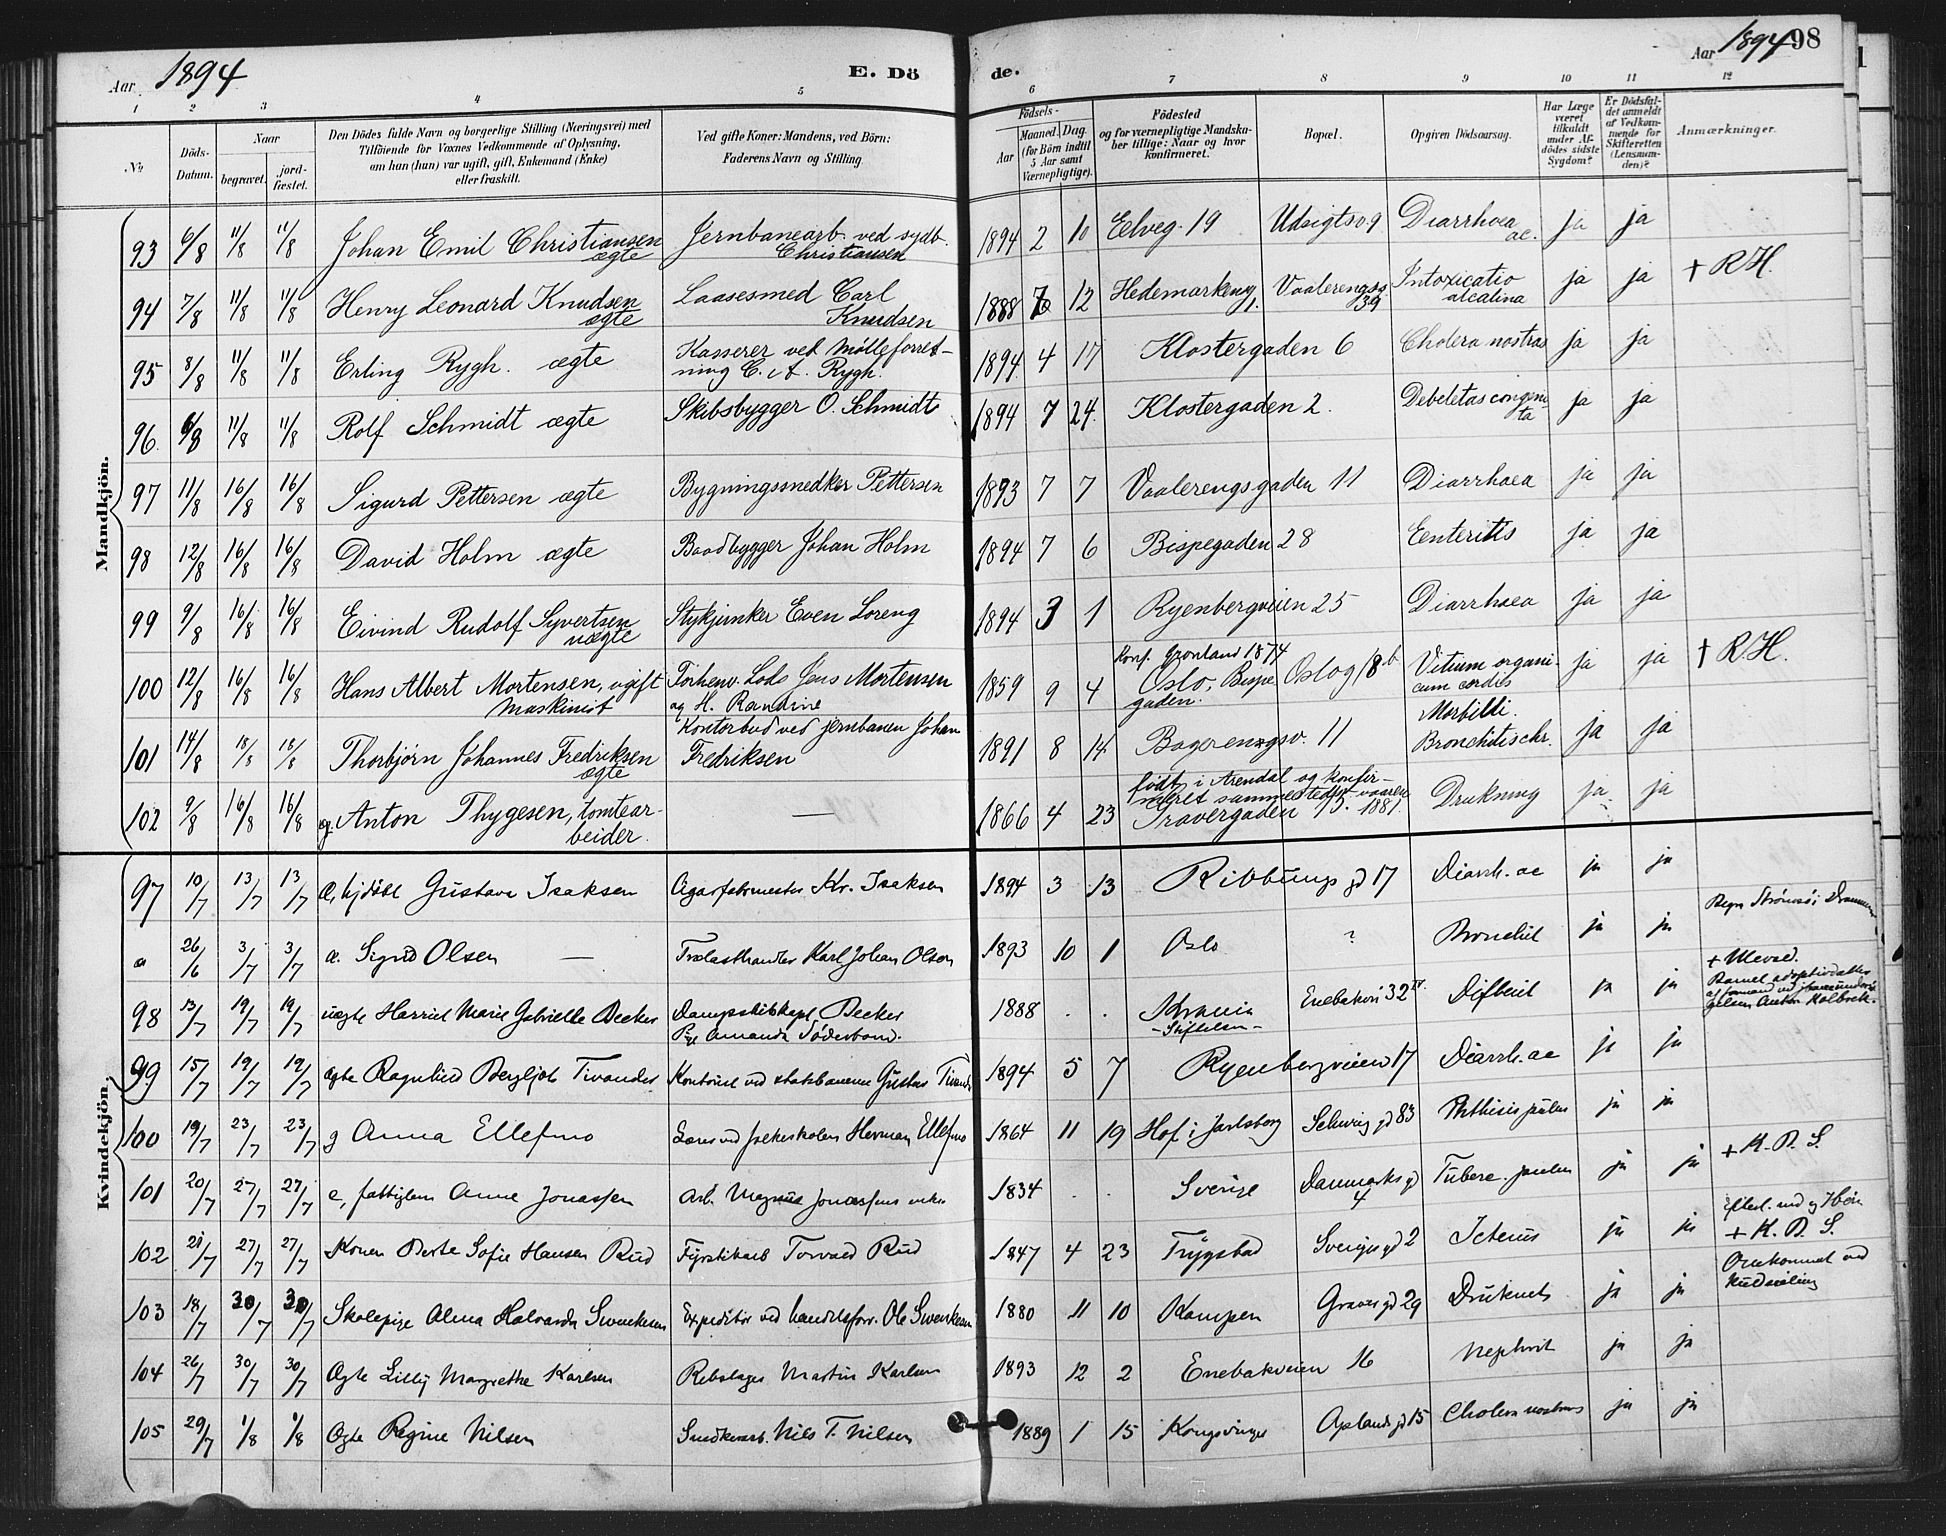 Aar 1894 E. Dö de. Aar 1894 98
1 2 3 4 5 6 7 8 9 10 11 12
No Döds-Datum. Naar begravet. jord-fæstet. Den Dödes fulde Navn og borgerlige Stilling (Næringsvei) med Tilföiende for Voxnes Vedkommende af Oplysning, om han (hun) var ugift, gift, Enkemand (Enke) eller fraskilt. Ved gifte Koner: Mandens, ved Börn: Faderens Navn og Stilling. Födsels- Aar Maaned. Dag. (for Börn indtil 5 Aar samt Værnepligtige). Födested og for værnepligtige Mandskaber tillige: Naar og hvor konfirmeret. Bopæl. Opgiven Dödsaarsag. Har Læge været tilkaldt under Afdödes sidste Sygdom? Er Dödsfaldet anmeldt af Vedkommende for Skifteretten (Lensmanden)? Anmærkninger.
Mandkjön.
93 6/8 11/8 11/8 Johan Emil Christiansen ægte Jernbanearb. ved sydb. Christiansen 1894 2 10 Eelveg. 19 Udsigtsv. 9 Diarrhoea ac. ja ja
94 7/8 11/8 11/8 Henry Leonard Knudsen ægte Laasesmed Carl Knudsen 1888 12 Hedemarkeng. 1. Vaalerengsg 39 Intoxicatio alcalina ja ja + R.H.
95 8/8 11/8 11/8 Erling Rygh. ægte Kasserer ved Mölleforretning C. A. Rygh. 1894 4 17 Klostergaden 6 Cholera nostras ja ja
96 6/8 11/8 11/8 Rolf Schmidt ægte Skibsbygger O. Schmidt 1894 7 24 Klostergaden 2. Debeletas congenita ja ja
97 11/8 16/8 16/8 Sigurd Pettersen ægte Bygningssnedker Pettersen 1893 7 7 Vaalerengsgaden 11 Diarrhoea ja ja
98 12/8 16/8 16/8 David Holm ægte Baadbygger Johan Holm 1894 7 6 Bispegaden 28 Eenteritis ja ja
99 9/8 16/8 16/8 Eivind Rudolf Syvertsen uægte Stykjunker Even Loreng 1894 3 1 Ryenbergveien 25 Diarrhoea ja ja
100 12/8 16/8 16/8 Hans Albert Mortensen, ugift maskinist Forhenv. Lods Jens Mortensen og H. Randine 1859 9 4 Konf. Grönland 1874 Oslo, Bispegaden. Oslog 18 b Vitium organicum cordis ja ja + R.H.
101 14/8 18/8 18/8 Thorbjörn Johannes Fredriksen ægte Kontorbud ved jernbanen Johan Fredriksen 1891 8 14 Bagerengsv. 11 Morbilli. Bronchitis chr. ja ja
102 9/8 16/8 16/8 g. Anton Thygesen, tomtearbeider. — 1866 4 23 födt i Arendal og konfirmeret sammesteds vaaren 1881. Travergaden 15. Drukning ja ja
Kvindekjön.
97 10/7 13/7 13/7 Gustava Isaksen Kr. Isaksen 1894 3 13 17 Diarrh. ac ja ja
a 26/6 3/7 3/7 æ. Sigrid Olsen — Trælasthandler Karl Johan Olsen 1893 10 1 Oslo ? Bronchit ja ja Begr. Strömsö i Drammen
98 13/7 19/7 19/7 uægte Harriet Marie Gabrielle Becker Dampskibskapt. Becker Pige Amanda Söderbom. 1888 . . Krania -Stiftelsen- Enebakv. 32 IV Difterit ja ja + Ullevaal.
99 15/7 19/7 19/7 ægte Ragnhild Bergljot Tivander Kontorist ved statsbanerne Gustav Tivander 1894 5 7 Ryenbergveien 17 Diarrh. ac ja ja
100 19/7 23/7 23/7 g Anna Ellefmo Lærer ved folkeskolen Herman Ellefmo 1864 11 19 Hof i Jarlsberg Schweig gd 83 Phthisis pulm ja ja
101 20/7 27/7 27/7 e, fattiglem Anne Jonassen Arb. Magnus Jonassens enke 1834 . . Sverige Danmarks gd 4 Tuberc. pulm ja ja + K. D. S.
102 21/7 27/7 27/7 Konen Berte Sofie Hansen Rud Fyrstikarb Torvald Rud 1847 4 23 Trygstad Sveriges gd 2 Icterus ja ja + K. D. S.
103 18/7 30/7 30/7 Skolepige Alma Halvarda Svenkesen Expeditör ved handelsforr. Ole Svenkesen 1880 11 10 Kampen Graves gd 29 Druknet ja ja Omkommet ved
104 26/7 30/7 30/7 Ægte Lilly Margrethe Karlsen Rebslager Martin Karlsen 1893 12 2 Enebakveien 16 Nephrit ja ja
105 29/7 1/8 1/8 Ægte Regine Nilsen Snedkerarb. Nils T. Nilsen 1889 1 15 Kongsvinger Oplands gd 15 Cholera nostras ja ja